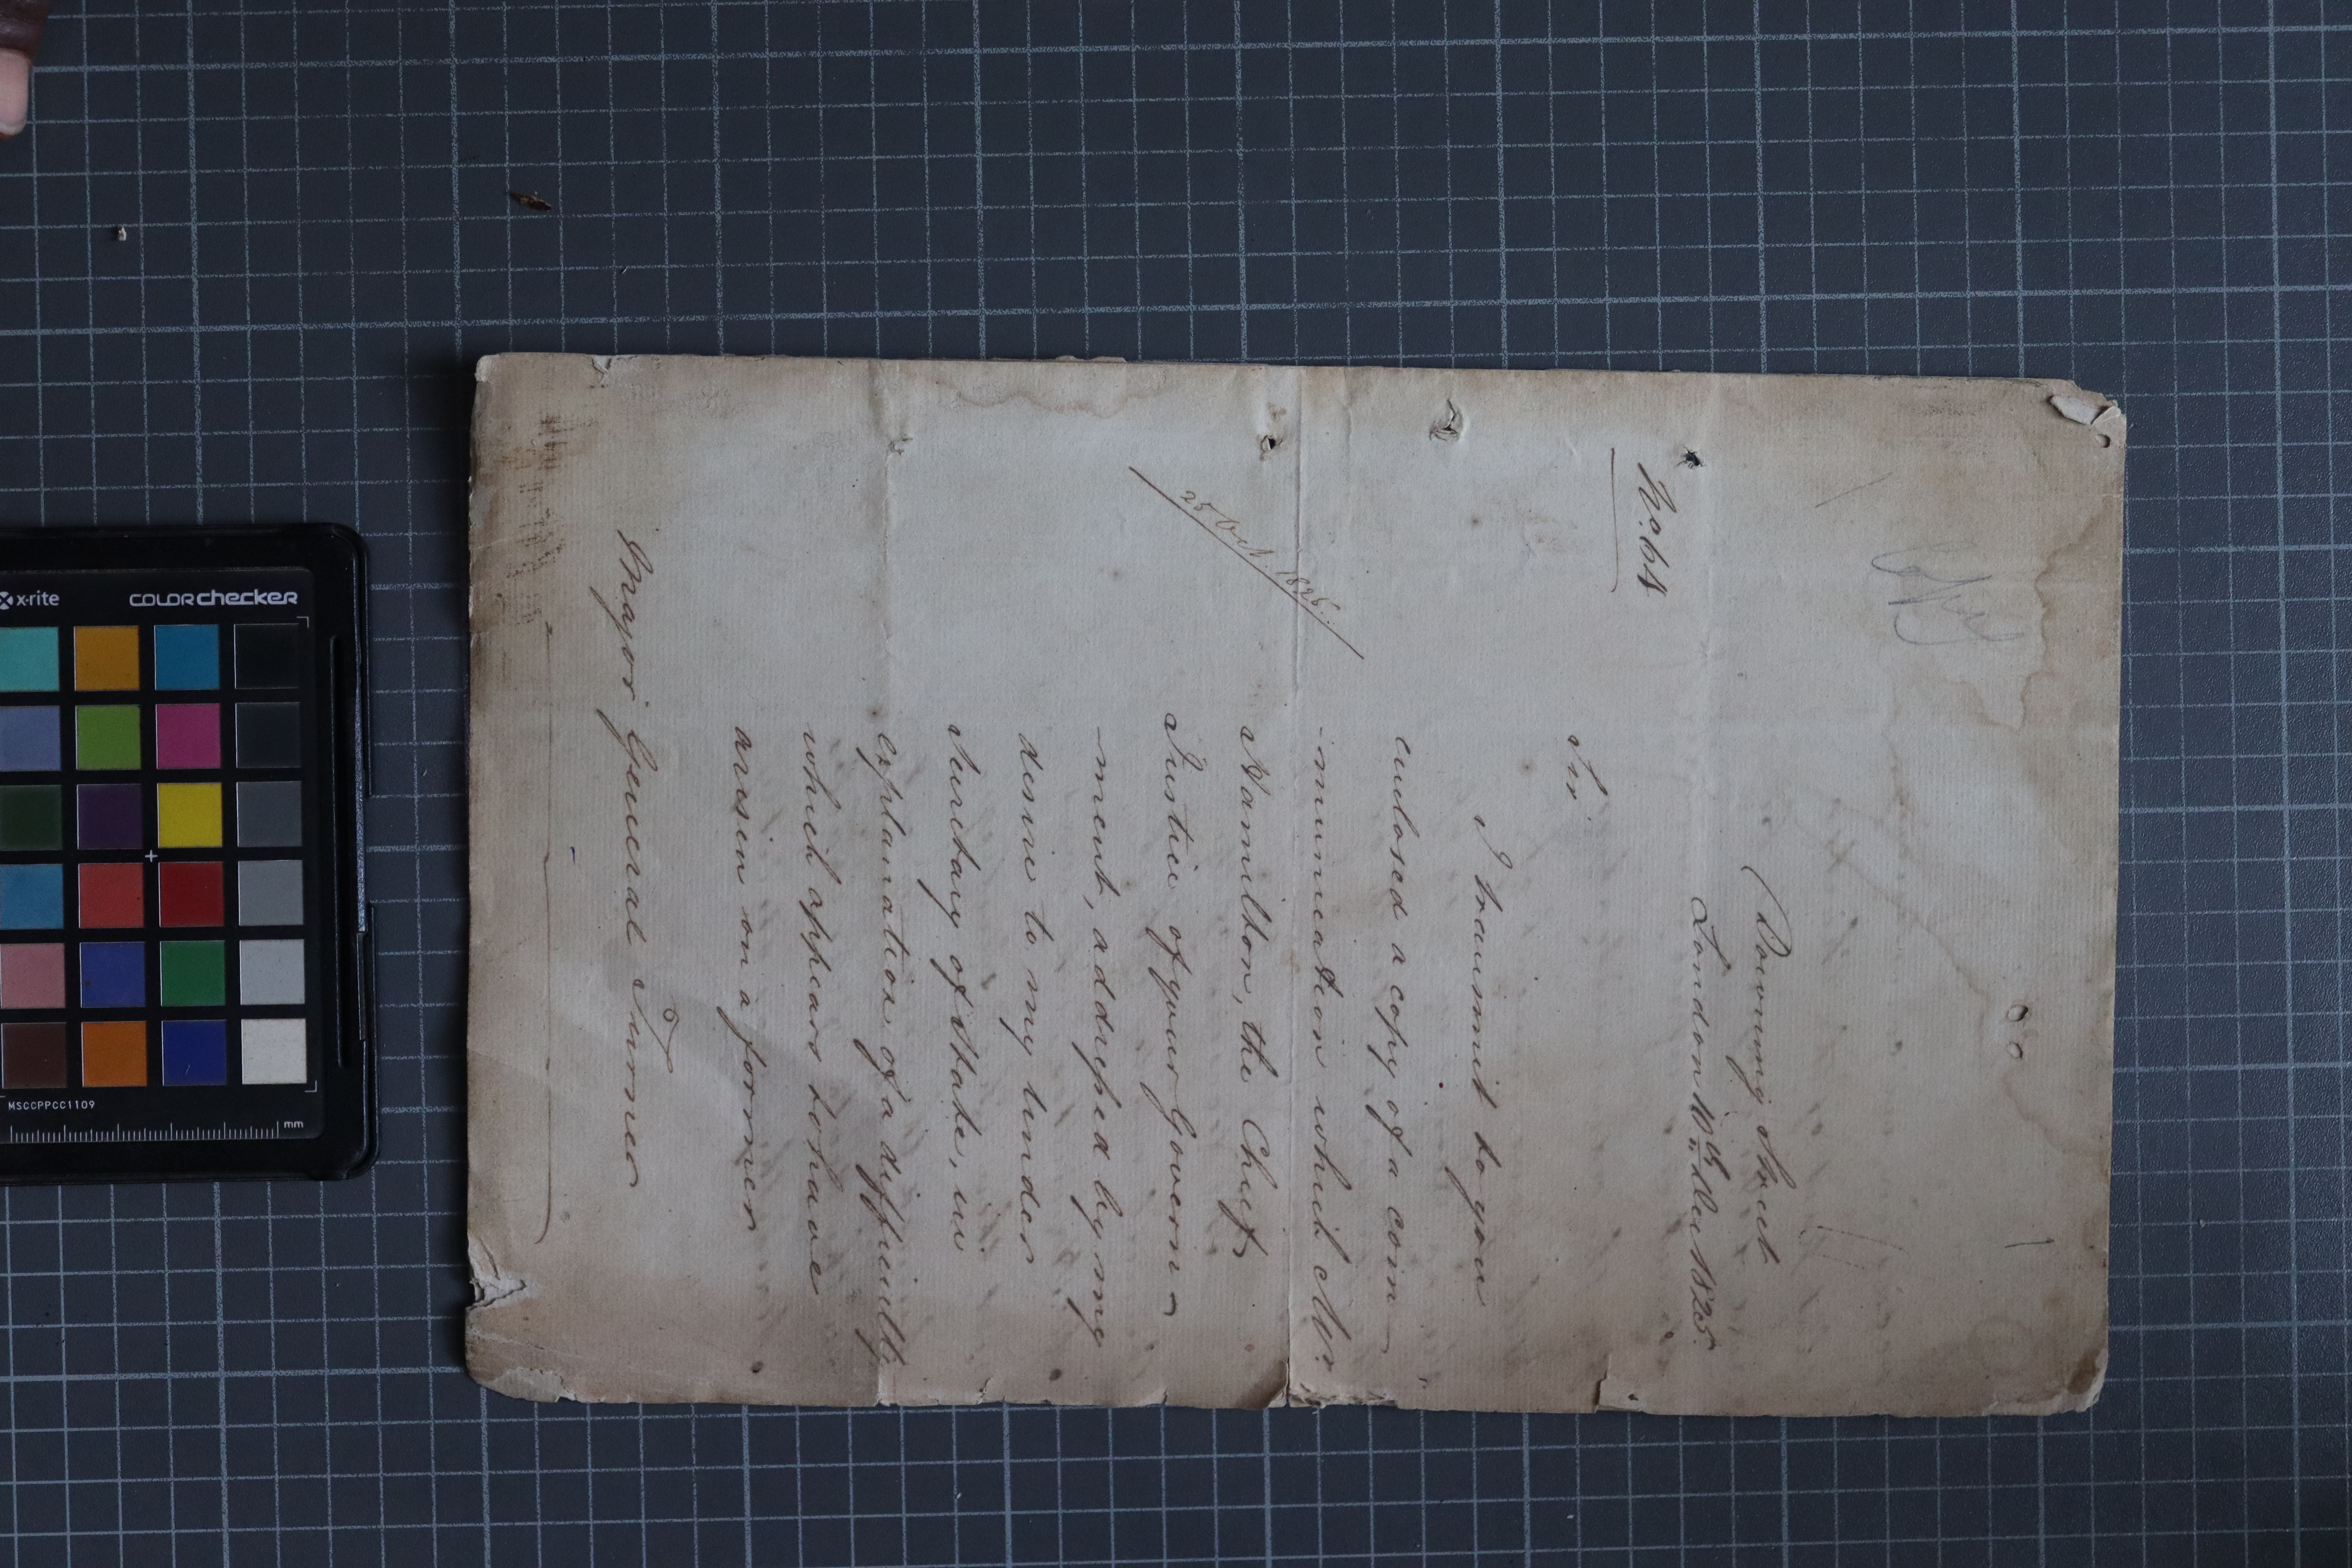 Copy
Downing Street
London 10th Dec 1825.
No. 64
Sir
I transmit to you
enclosed a copy of a com
-munication which Mr.
25 Oct. 1825.
Hamilton, the Chief
Justice of your Govern-
-ment, addressed by my
desire to my under
Secretary of State, in
explanation of a difficulty
which appears to have
arisen on a former
Major General Turner
x-rite colorchecker
MSCCPPCC1109
mm